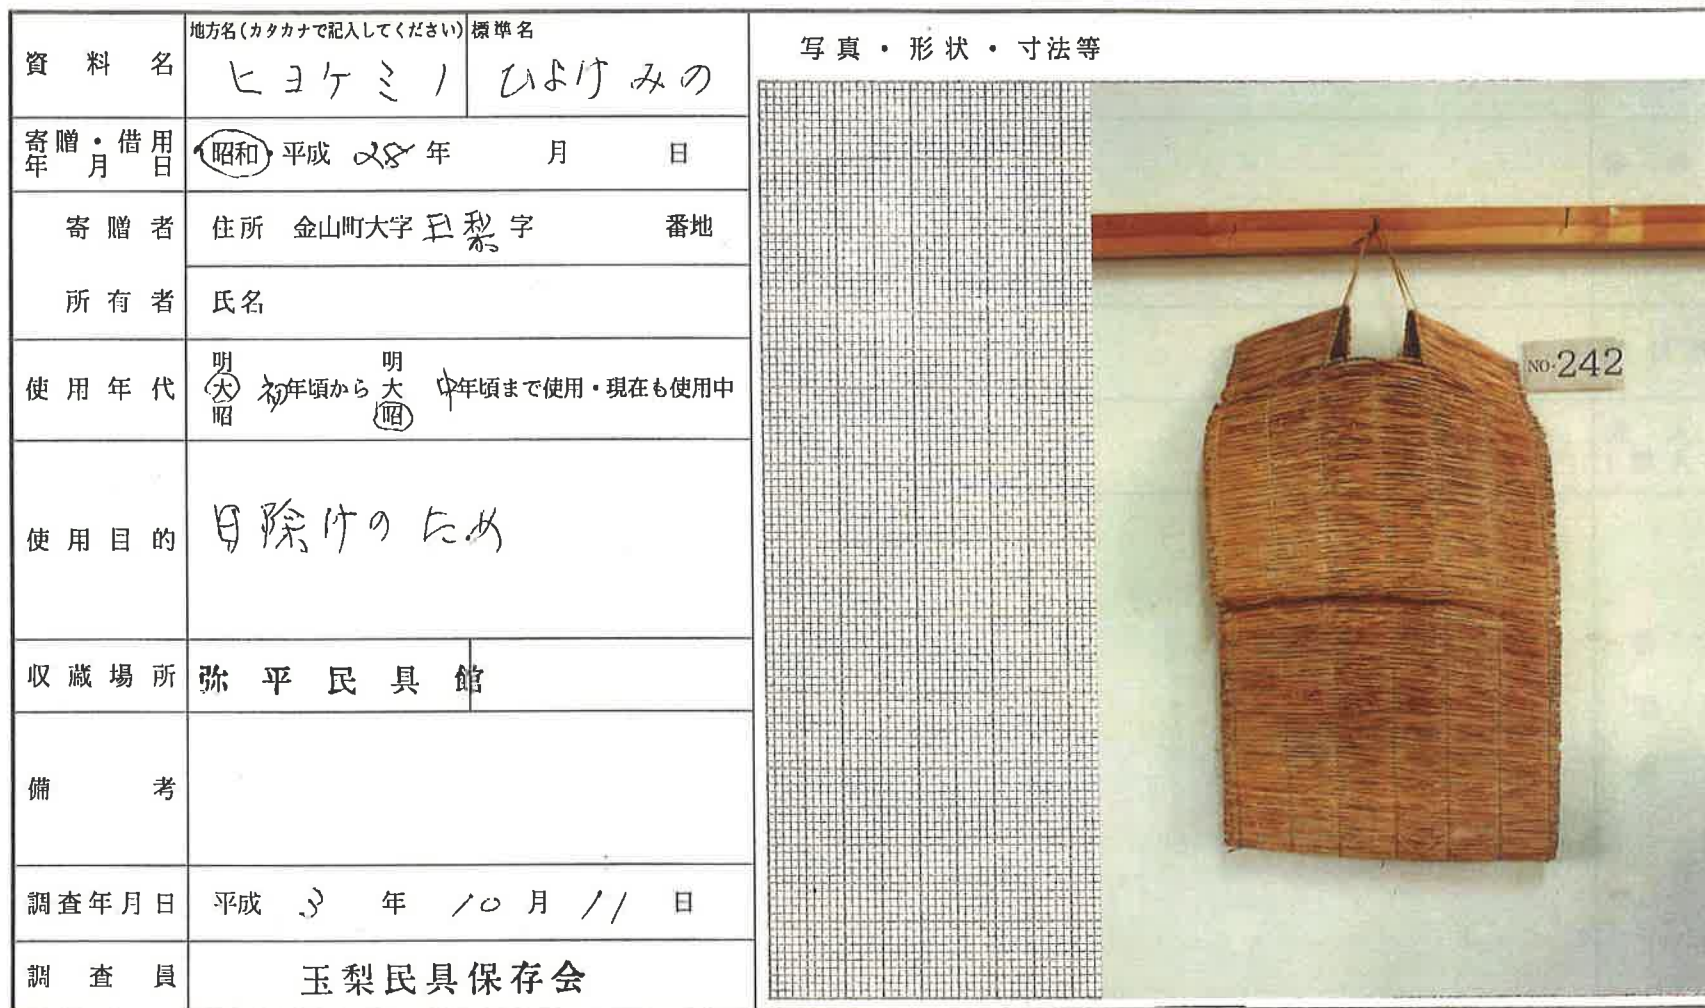 資料名
地方名(カタカナで記入してください)
ヒヨケミノ
標準名
ひよけみの
寄贈・借用
年月日
昭和・平成 28年 月 日
寄贈者
住所 金山町大字玉梨字 番地
所有者
氏名
使用年代
明
大 初年頃から
昭
明
大 中年頃まで使用・現在も使用中
昭
使用目的
日除けのため
収蔵場所
弥平民具館
備考
調査年月日
平成 3年 10月 11日
調査員
玉梨民具保存会
写真・形状・寸法等
NO.242